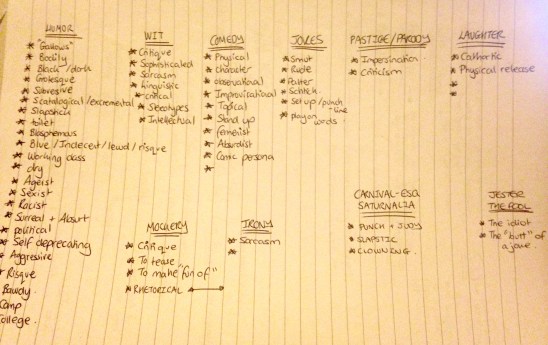 HUMOR
"Gallows"
Bodily
Black / dark
Grotesque
Subversive
Scatalogical / excremental
Slapstick
toilet
Blasphemous
Blue / Indecent / lewd / risque
Working class
dry
Ageist
Sexist
Racist
Surreal + Absurt
political
Self deprecating
Aggressive
Risque
Bawdy
Camp
College.
WIT
Critique
Sophisticated
Sarcasm
Linguistic
Critical
Stereotypes
Intellectual
COMEDY
Physical
Character
observational
Improvisational
Topical
Stand up
feminist
Absurdist
Comic persona
JOKES
Smut
Rude
Patter
Schtick
Set up / punch
-line
play on
words.
PASTIGE / PARODY
Impersination
Criticism
LAUGHTER
Cathartic
Physical release
MOCKERY
Critique
To tease
To make "fun of"
RHETORICAL
IRONY
Sarcasm
CARNIVAL-ESQ
SATURNALIA
PUNCH + JUDY
SLAPSTIC
CLOWNING.
JESTER
THE FOOL
The idiot
The "butt" of
a joke.